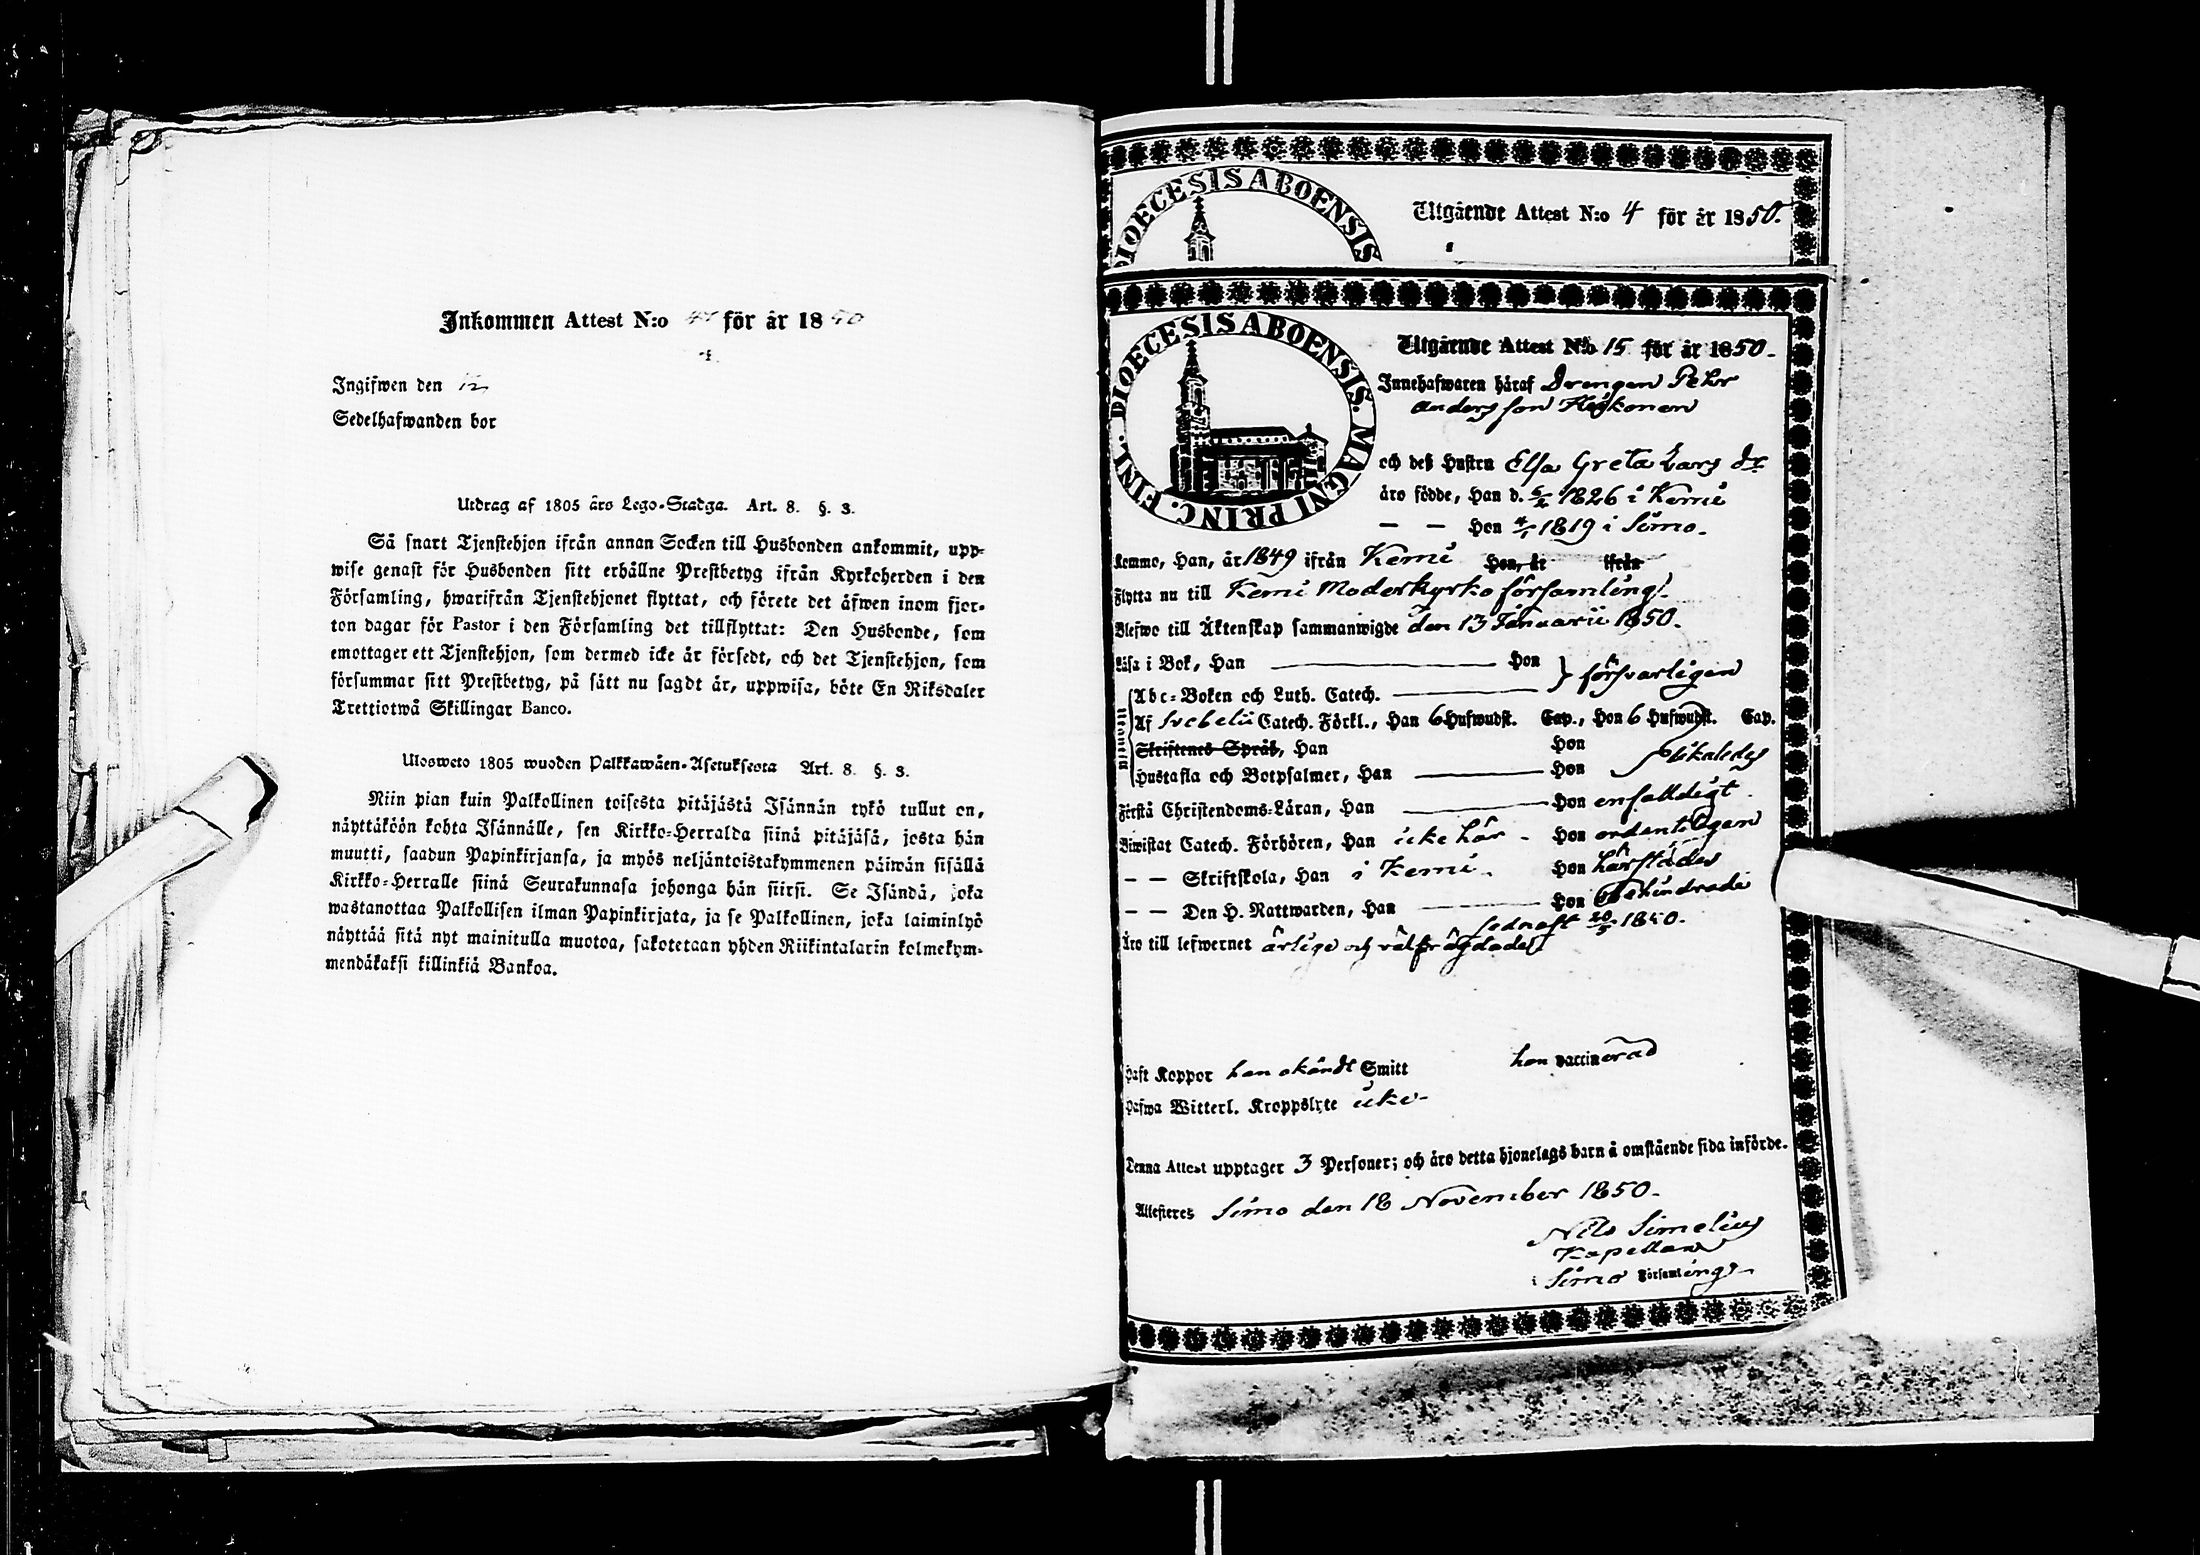 Inkommen Attest N:o för år 1850
Ingifwen den 12
Sedelhafwanden bor
Utdrag af 1805 års Lego-Stadga. Art. 8. §. 3.
Så snart Tjenstehjon ifrån annan Socken till Husbonden ankommit, upp-
wise genast för Husbonden sitt erhållne Prestbetyg ifrån Kyrkoherden i den
Församling, hwarifrån Tjenstehjonet flyttat, och förete det äfwen inom fjor-
ton dagar för Pastor i den Församling det tillflyttat: Den Husbonde, som
emottager ett Tjenstehjon, som dermed icke är försedt, och det Tjenstehjon, som
försummar sitt Prestbetyg, på sätt nu sagdt är, uppwisa, böte En Riksdaler
Trettiotwå Skillingar Banco.
Ulosweto 1805 wuoden Palkkawäen-Asetuksesta Art. 8. §. 3.
Niin pian kuin Palkollinen toisesta pitäjästä Isännän tykö tullut on,
näyttäköön kohta Isännälle, sen Kirkko-Herralda siinä pitäjäsä, josta hän
muutti, saadun Papinkirjansa, ja myös neljäntoistakymmenen päiwän sisällä
Kirkko-Herralle siinä Seurakunnasa johonga hän siirsi. Se Isändä, joka
wastanottaa Palkollisen ilman Papinkirjata, ja se Palkollinen, joka laiminlyö
näyttää sitä nyt mainitulla muotoa, sakotetaan yhden Riikintalarin kolmekym-
mendäkaksi killinkiä Bankoa.
DIOECESIS ABOENSIS
Utgående Attest N:o 4 för år 1850.
DIOECESIS ABOENSIS. MAGNI PRINC. FINL.
Utgående Attest N:o 15 för år 1850.
Innehafwaren häraf Drengen Pehr
Andersson Keskonen
och deß Hustru Elsa Greta Lars dr
äro födde, Han d. 5/2 1826 i Kemi
— — Hon 4/1 1819 i Simo.
Komme, Han, år 1849 ifrån Kemi Hon, år ifrån
Flytta nu till Kemi Moderkyrko församling.
Blefwo till Äktenskap sammanwigde den 13 Januarii 1850.
Läsa i Bok, Han — Hon } försvarligen
Utantill Abc-Boken och Luth. Catech. —
Af Svebelii Catech. Förkl., Han 6 Hufwudst. Cap., Hon 6 Hufwudst. Cap.
Skriftenes Språk, Han Hon
Hustafla och Botpsalmer, Han — Hon likaledes
Förstå Christendoms-Läran, Han — Hon enfaldigt
Biwistat Catech. Förhören, Han icke här - Hon ordentligen
— — Skriftskola, Han i Kemi. Hon härstädes
— — Den H. Nattwarden, Han — Hon obehindrade
sednast 20/5 1850.
Äro till lefwernet ärlige och välfrägdade
Haft Koppor han okändt Smitt hon vaccinerad
Hafwa Witterl. Kroppslyte icke -
Denna Attest upptager 3 Personer; och äro detta hjonelags barn å omstående sida införde.
Attesteres Simo den 18 November 1850.
Nils Simelius
Kapellan
Simo Församlings